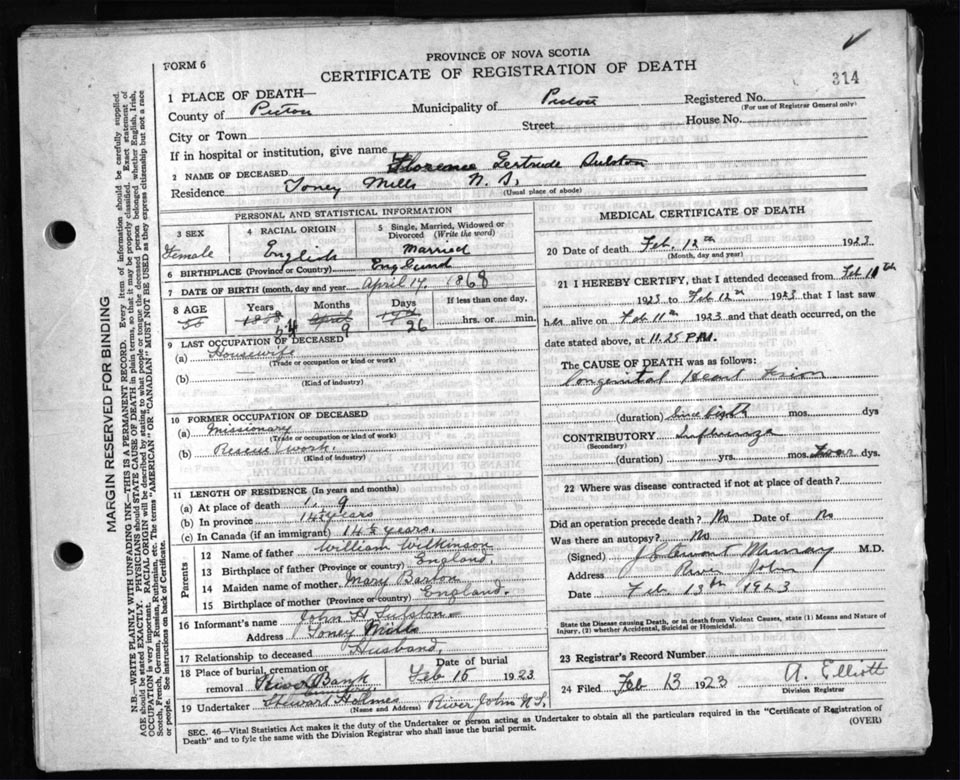 FORM 6
PROVINCE OF NOVA SCOTIA
CERTIFICATE OF REGISTRATION OF DEATH
314
1 PLACE OF DEATH—
County of Pictou Municipality of Pictou Registered No.
(For use of Registrar General only)
City or Town Street House No.
If in hospital or institution, give name
2 NAME OF DECEASED Florence Gertrude Sulston
Residence Toney Mills N. S.
(Usual place of abode)
PERSONAL AND STATISTICAL INFORMATION
3 SEX 4 RACIAL ORIGIN 5 Single, Married, Widowed or Divorced (Write the word)
Female English Married
6 BIRTHPLACE (Province or Country) England
7 DATE OF BIRTH (month, day and year) April 17, 1868
8 AGE Years Months Days If less than one day,
55 1868 April 17th hrs. or min.
54 9 26
9 LAST OCCUPATION OF DECEASED
(a) Housewife
(Trade or occupation or kind or work)
(b)
(Kind of industry)
10 FORMER OCCUPATION OF DECEASED
(a) Missionary
(Trade or occupation or kind of work)
(b) Rescue work.
(Kind of industry)
11 LENGTH OF RESIDENCE (In years and months)
(a) At place of death 1, 9
(b) In province 14½ years
(c) In Canada (if an immigrant) 14½ years.
Parents
12 Name of father William Wilkinson
13 Birthplace of father (Province or country) England.
14 Maiden name of mother Mary Barton
15 Birthplace of mother (Province or country) England.
16 Informant's name John H Sulston
Address Toney Mills
17 Relationship to deceased Husband.
18 Place of burial, cremation or removal River Bank Date of burial Feb 15 1923
19 Undertaker Stewart Holmes River John N.S.
(Name and Address)
MEDICAL CERTIFICATE OF DEATH
20 Date of death Feb. 12th 1923
(Month, day and year)
21 I HEREBY CERTIFY, that I attended deceased from Feb 10th
1923 to Feb 12th 1923 that I last saw
her alive on Feb 11th 1923 and that death occurred, on the
date stated above, at 11.25 P.M.
The CAUSE OF DEATH was as follows:
Congenital Heart
(duration) Since birth mos. dys
CONTRIBUTORY Influenza
(Secondary)
(duration) yrs. mos. Four dys.
22 Where was disease contracted if not at place of death?
Did an operation precede death? No Date of No
Was there an autopsy? No
(Signed) Murray M.D.
Address River John
Date Feb 13th 1923
State the Disease causing Death, or in death from Violent Causes, state (1) Means and Nature of Injury, (2) whether Accidental, Suicidal or Homicidal.
23 Registrar's Record Number
24 Filed Feb 13 1923 A. Elliott
Division Registrar
SEC. 46—Vital Statistics Act makes it the duty of the Undertaker or person acting as Undertaker to obtain all the particulars required in the "Certificate of Registration of
Death" and to fyle the same with the Division Registrar who shall issue the burial permit.
(OVER)
MARGIN RESERVED FOR BINDING
N.B.—WRITE PLAINLY WITH UNFADING INK—THIS IS A PERMANENT RECORD. Every item of information should be carefully supplied.
AGE should be stated EXACTLY. PHYSICIANS should STATE CAUSE OF DEATH in plain terms, so that it may be properly classified. Exact statement of
OCCUPATION is very important. RACIAL ORIGIN will be described by stating to what people or tongue the deceased person belonged whether English, Irish,
Scotch, French, German, Russian, Ruthenian, etc. The terms "AMERICAN" OR "CANADIAN" MUST NOT BE USED as they express citizenship but not a race
or people. See instructions on back of Certificate.